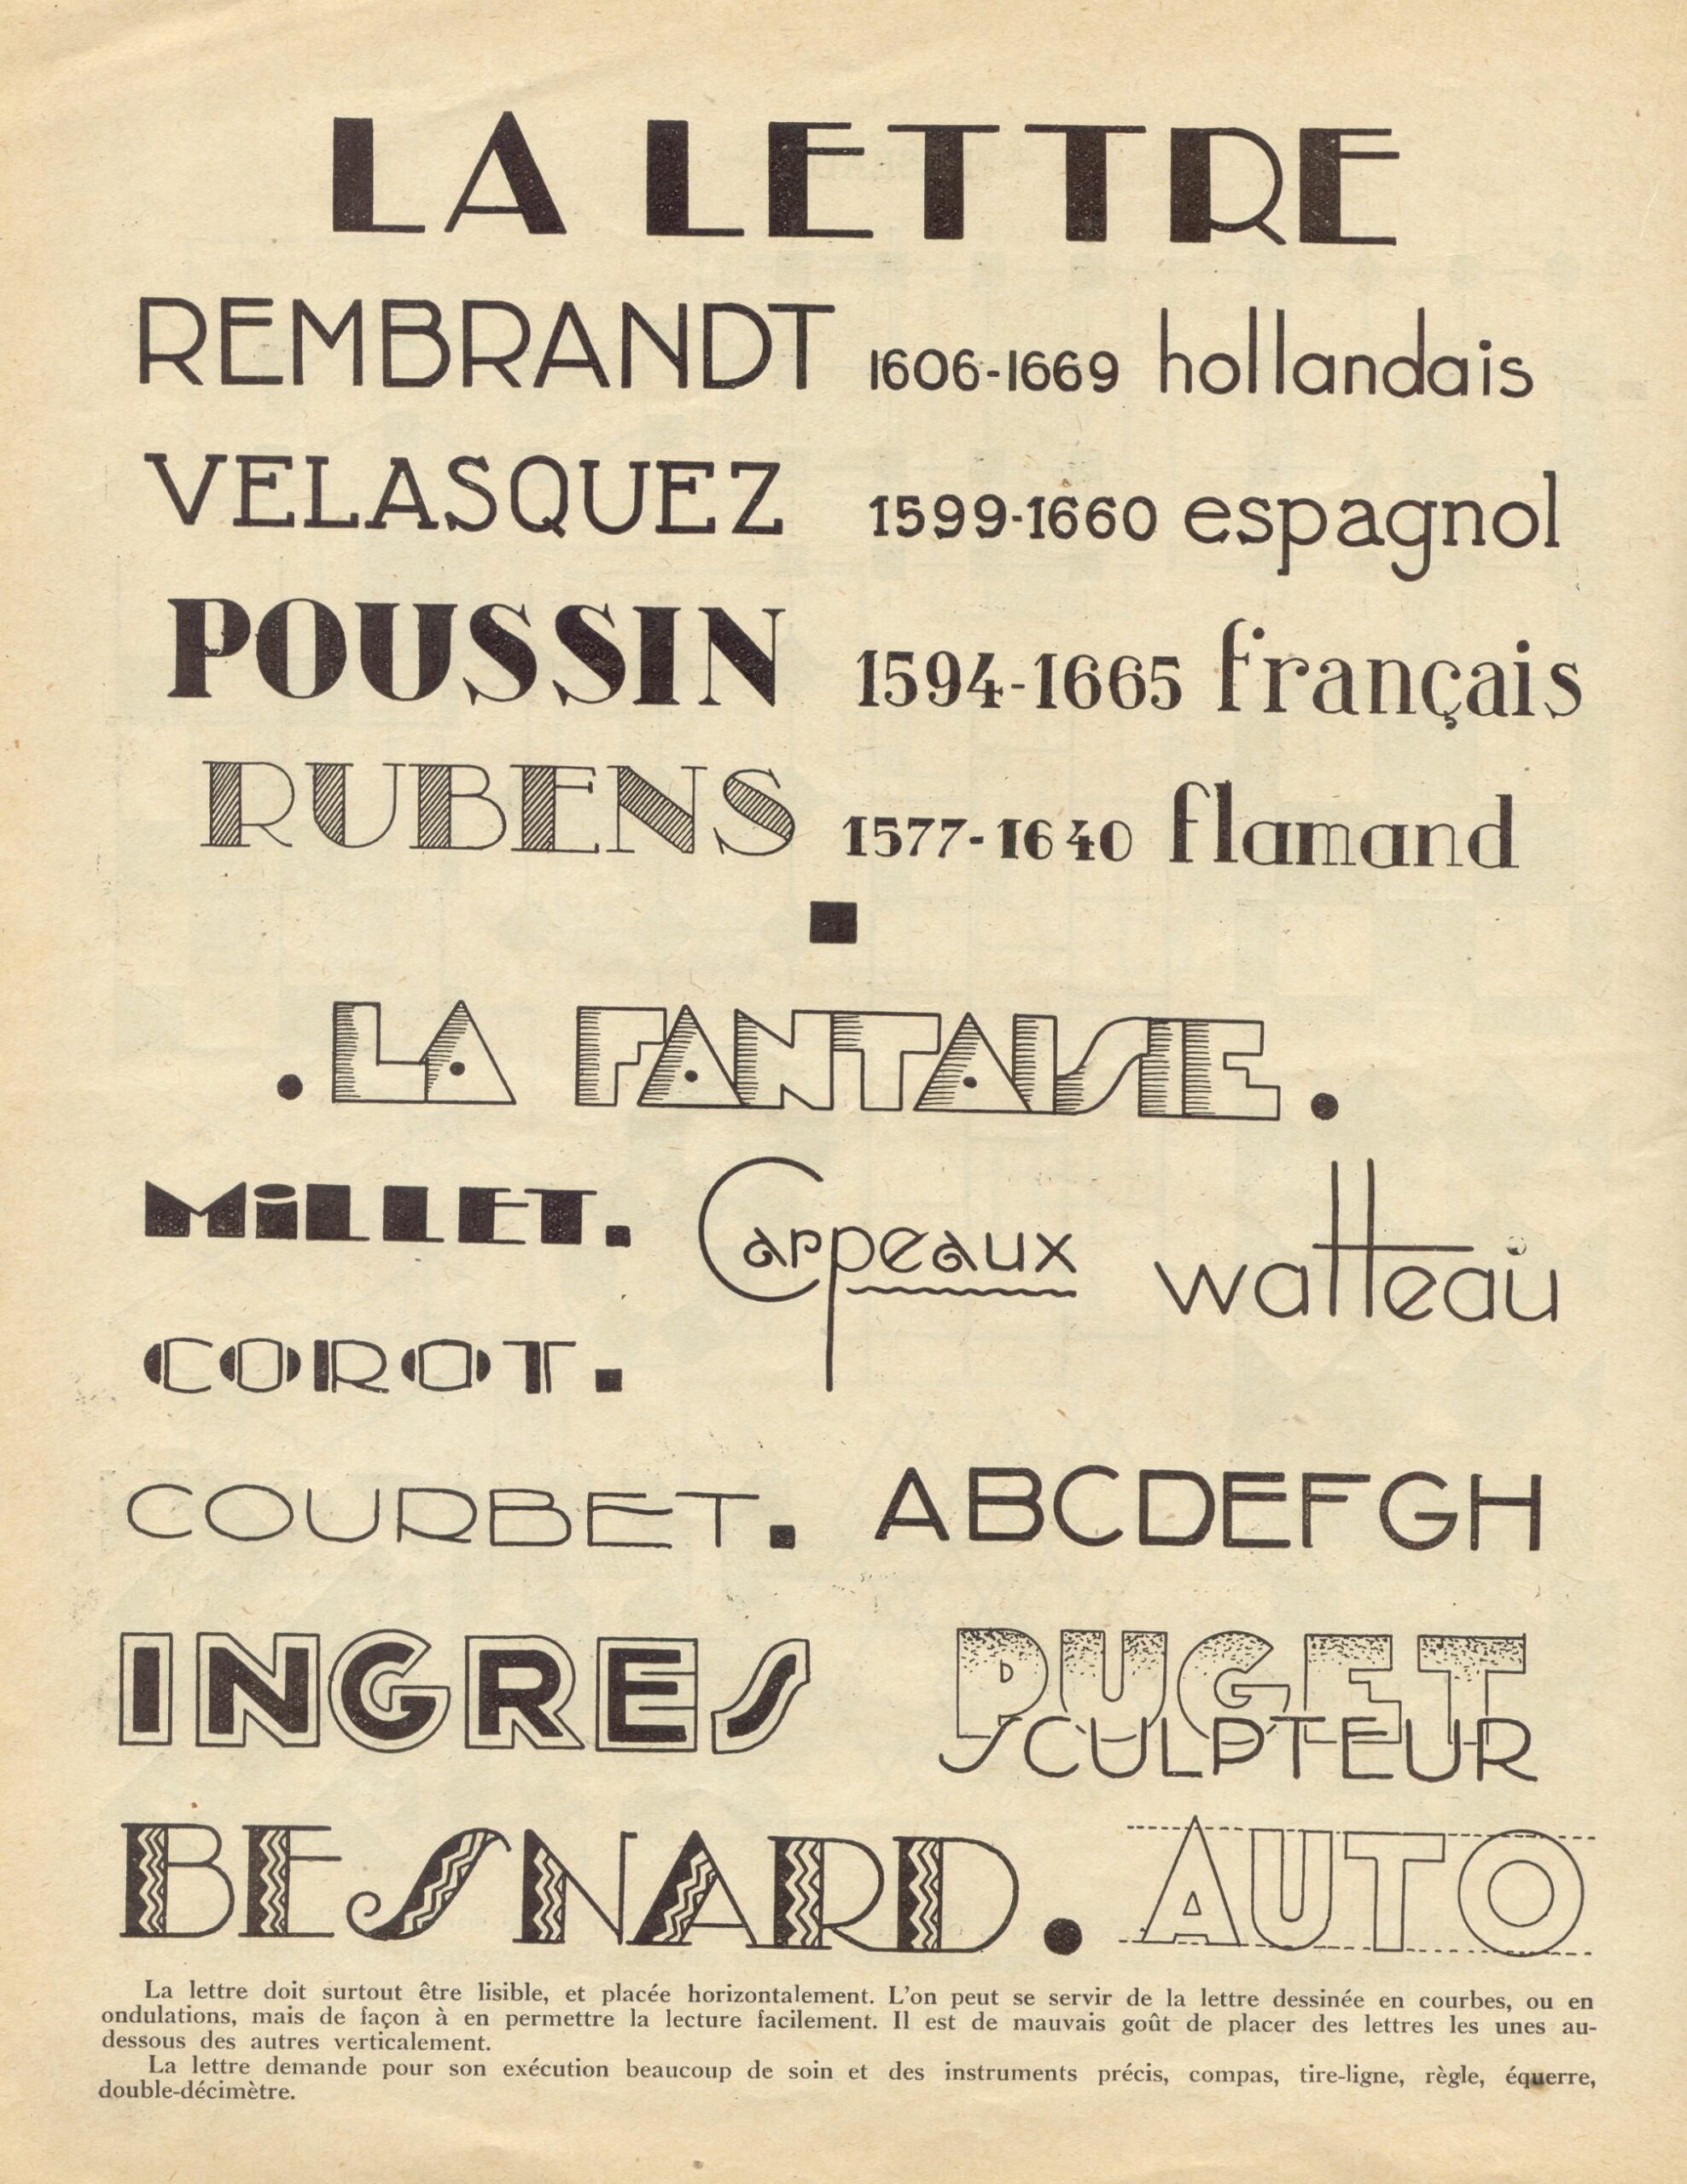 LA LETTRE
REMBRANDT 1606-1669 hollandais
VELASQUEZ 1599-1660 espagnol
POUSSIN 1594-1665 français
RUBENS 1577-1640 flamand
. LA FANTAISIE .
MiLLET. Carpeaux watteau
COROT.
COURBET. ABCDEFGH
INGRES PUGET
SCULPTEUR
BESNARD. AUTO
La lettre doit surtout être lisible, et placée horizontalement. L'on peut se servir de la lettre dessinée en courbes, ou en
ondulations, mais de façon à en permettre la lecture facilement. Il est de mauvais goût de placer des lettres les unes au-
dessous des autres verticalement.
La lettre demande pour son exécution beaucoup de soin et des instruments précis, compas, tire-ligne, règle, équerre,
double-décimètre.